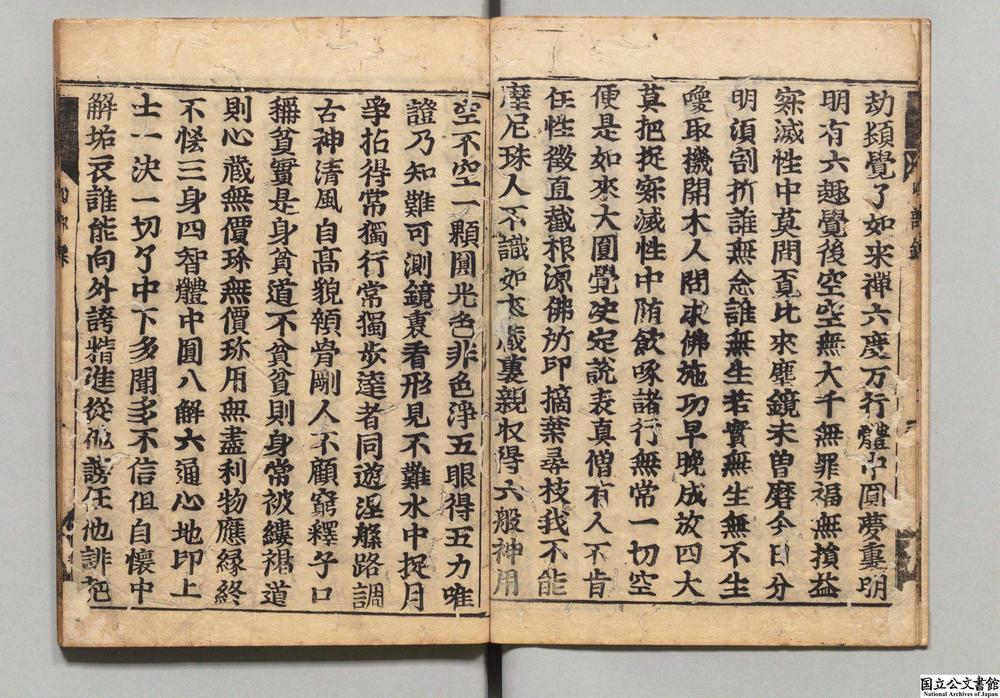 劫頓覺了如來禪六度万行體中圓夢裏明
明有六趣覺後空空無大千無罪福無損益
寂滅性中莫問覓比來塵鏡未曾磨今日分
明須剖析誰無念誰無生若實無生無不生
喚取機開木人問求佛施功早晚成放四大
莫把捉寂滅性中随飲啄諸行無常一切空
便是如來大圓覺决定說表真僧有人不肯
任性徵直截根源佛所印摘葉尋枝我不能
摩尼珠人不識如來藏裏親収得六般神用
空不空一顆圓光色非色淨五眼得五力唯
證乃知難可測鏡裏看形見不難水中捉月
爭拈得常獨行常獨步達者同遊涅槃路調
古神清風自髙貌顇骨剛人不顧窮釋子口
稱貧實是身貧道不貧貧則身常被縷褐道
則心蔵無價珎無價珎用無盡利物應緣終
不恡三身四智體中圓八解六通心地印上
士一決一切了中下多聞多不信但自懷中
解垢衣誰能向外誇精進從他謗任他誹把
国立公文書館
National Archives of Japan